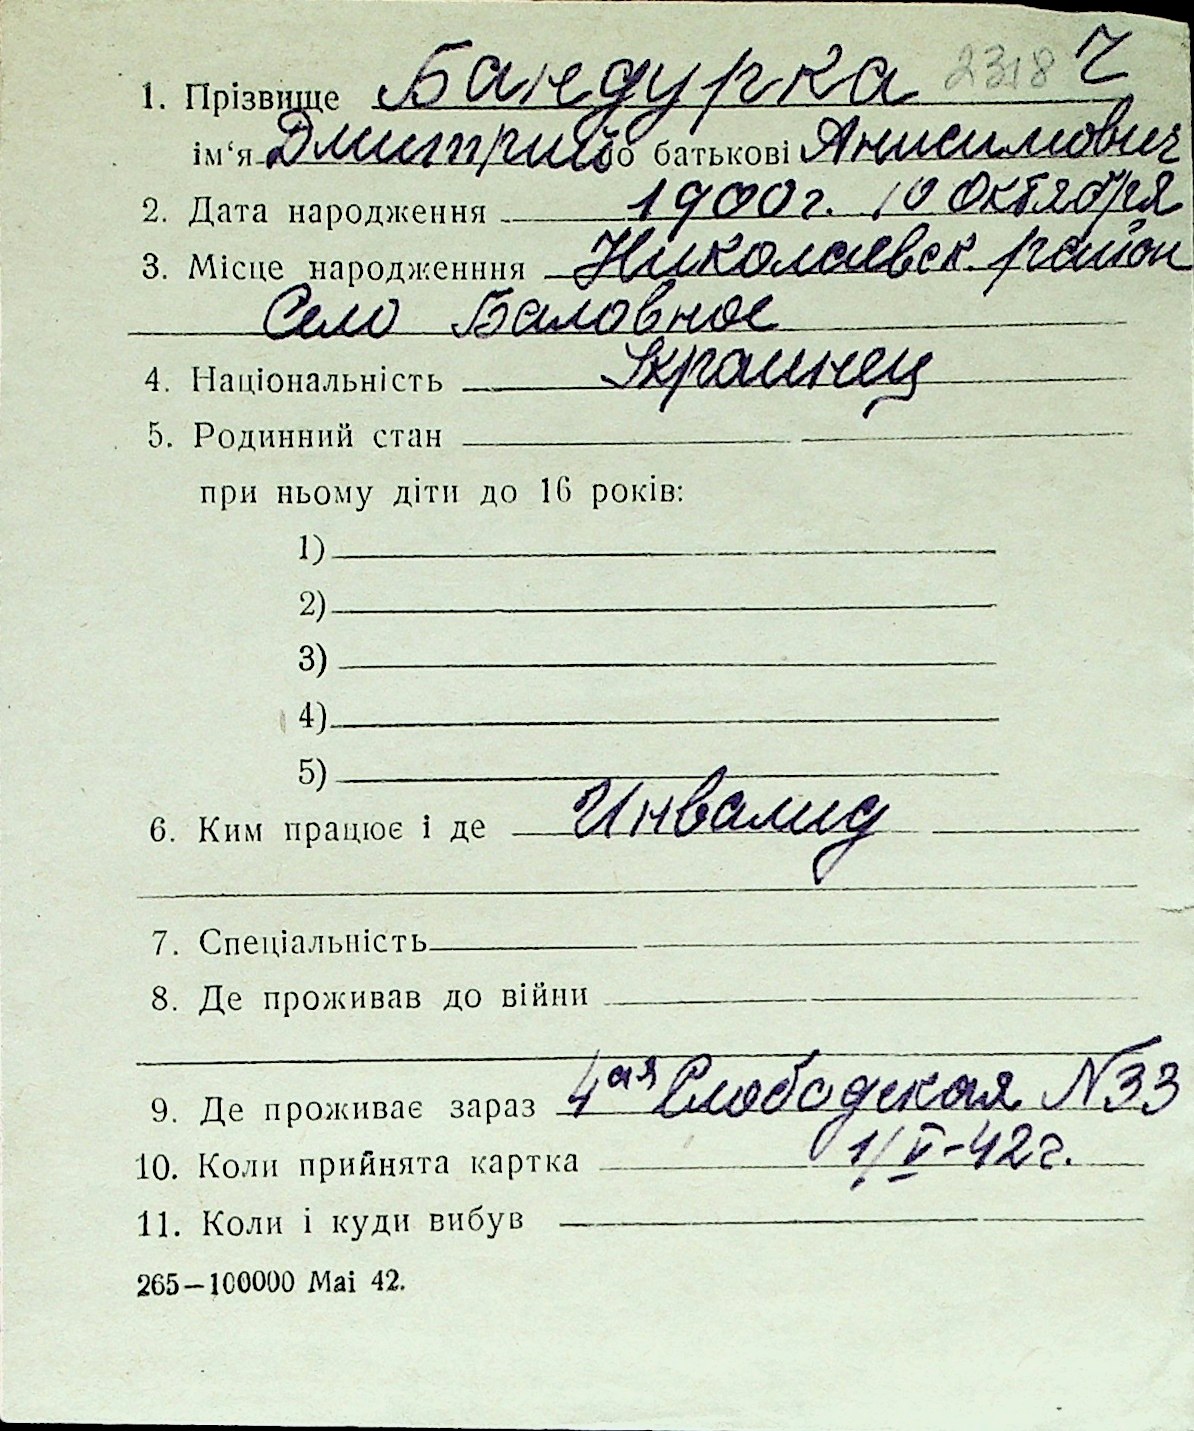 1. Прізвище Бандурка 2318 Ч
ім‘я Дмитрий по батькові Анисимович
2. Дата народження 1900 г. 10 Октября
3. Місце народженння Николаевск. район
Село Баловное
4. Національність Украинец
5. Родинний стан
при ньому діти до 16 років:
1)
2)
3)
4)
5)
6. Ким працює і де Инвалид
7. Спеціальність
8. Де проживав до війни
9. Де проживає зараз 4ая Слободская N33
10. Коли прийнята картка 1/V-42 г.
11. Коли і куди вибув
265—100000 Mai 42.